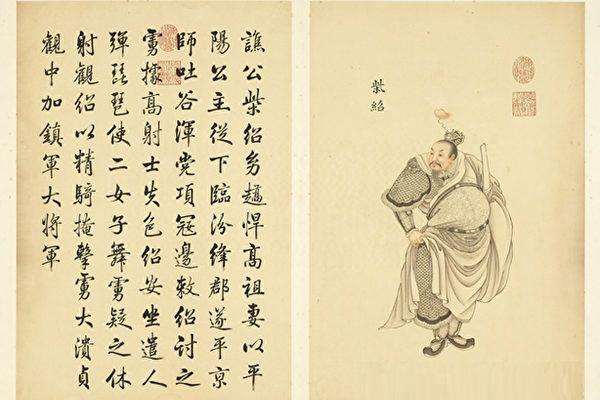 柴紹
譙公柴紹幼趫悍高祖妻以平
陽公主從下臨汾絳郡遂平京
師吐谷渾党項寇邊敕紹討之
虜據高射士失色紹安坐遣人
彈琵琶使二女子舞虜疑之休
射觀紹以精騎掩擊虜大潰貞
觀中加鎮軍大將軍